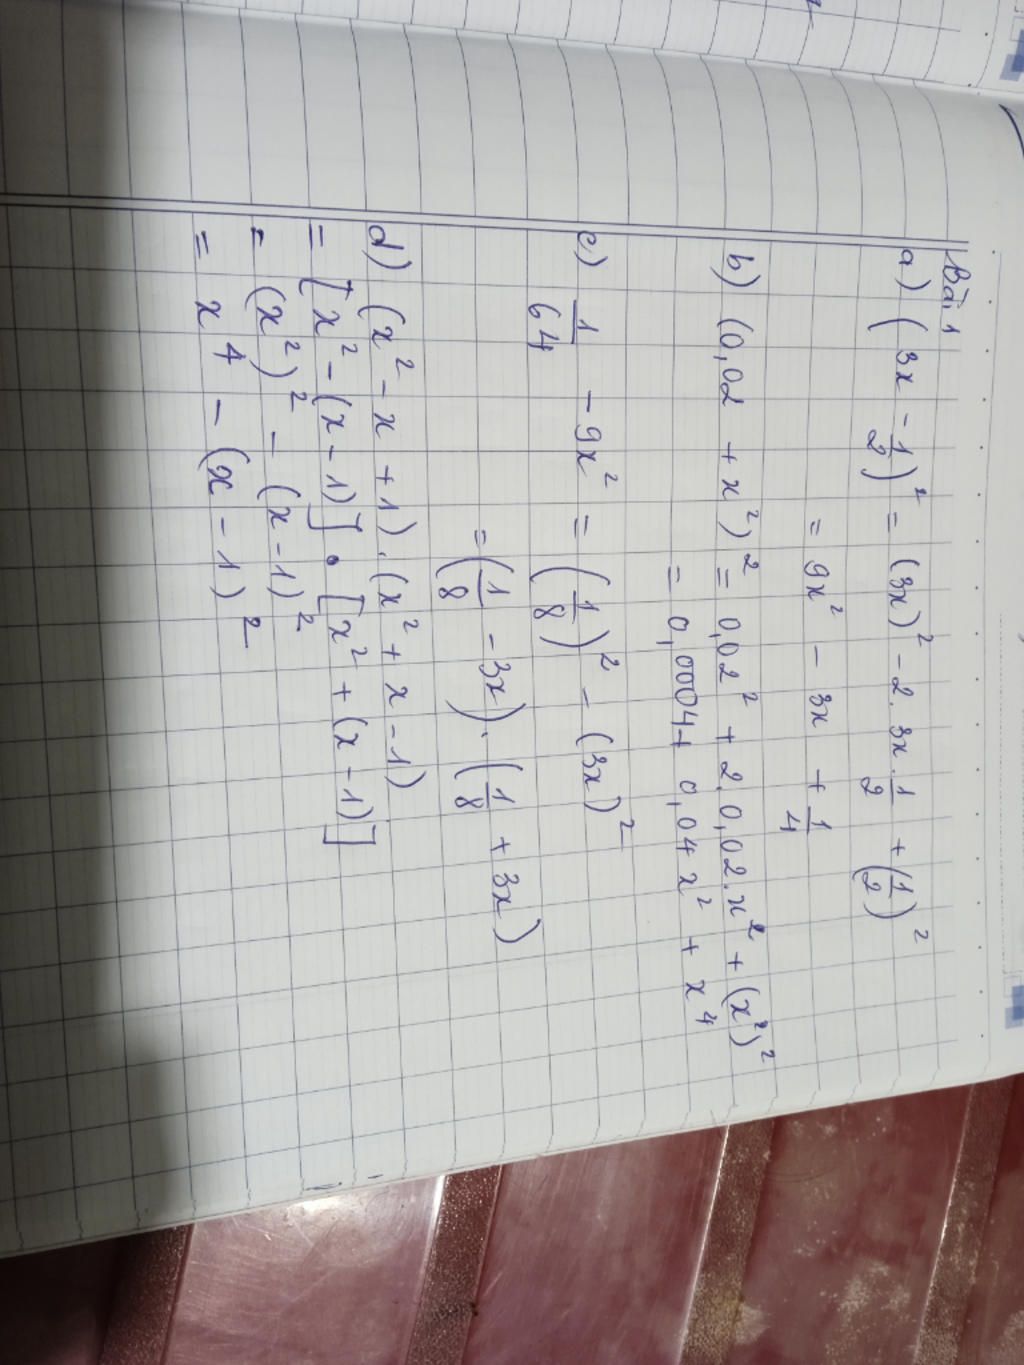 Bài 1
a) (3x - 1/2)² = (3x)² - 2. 3x. 1/2 + (1/2)²
= 9x² - 3x + 1/4
b) (0,02 + x²)² = 0,02² + 2.0,02.x² + (x²)²
= 0,0004 + 0,04x² + x⁴
c) 1/64 - 9x² = (1/8)² - (3x)²
= (1/8 - 3x).(1/8 + 3x)
d) (x² - x + 1).(x² + x - 1)
= [x² - (x - 1)] . [x² + (x - 1)]
= (x²)² - (x - 1)²
= x⁴ - (x - 1)²